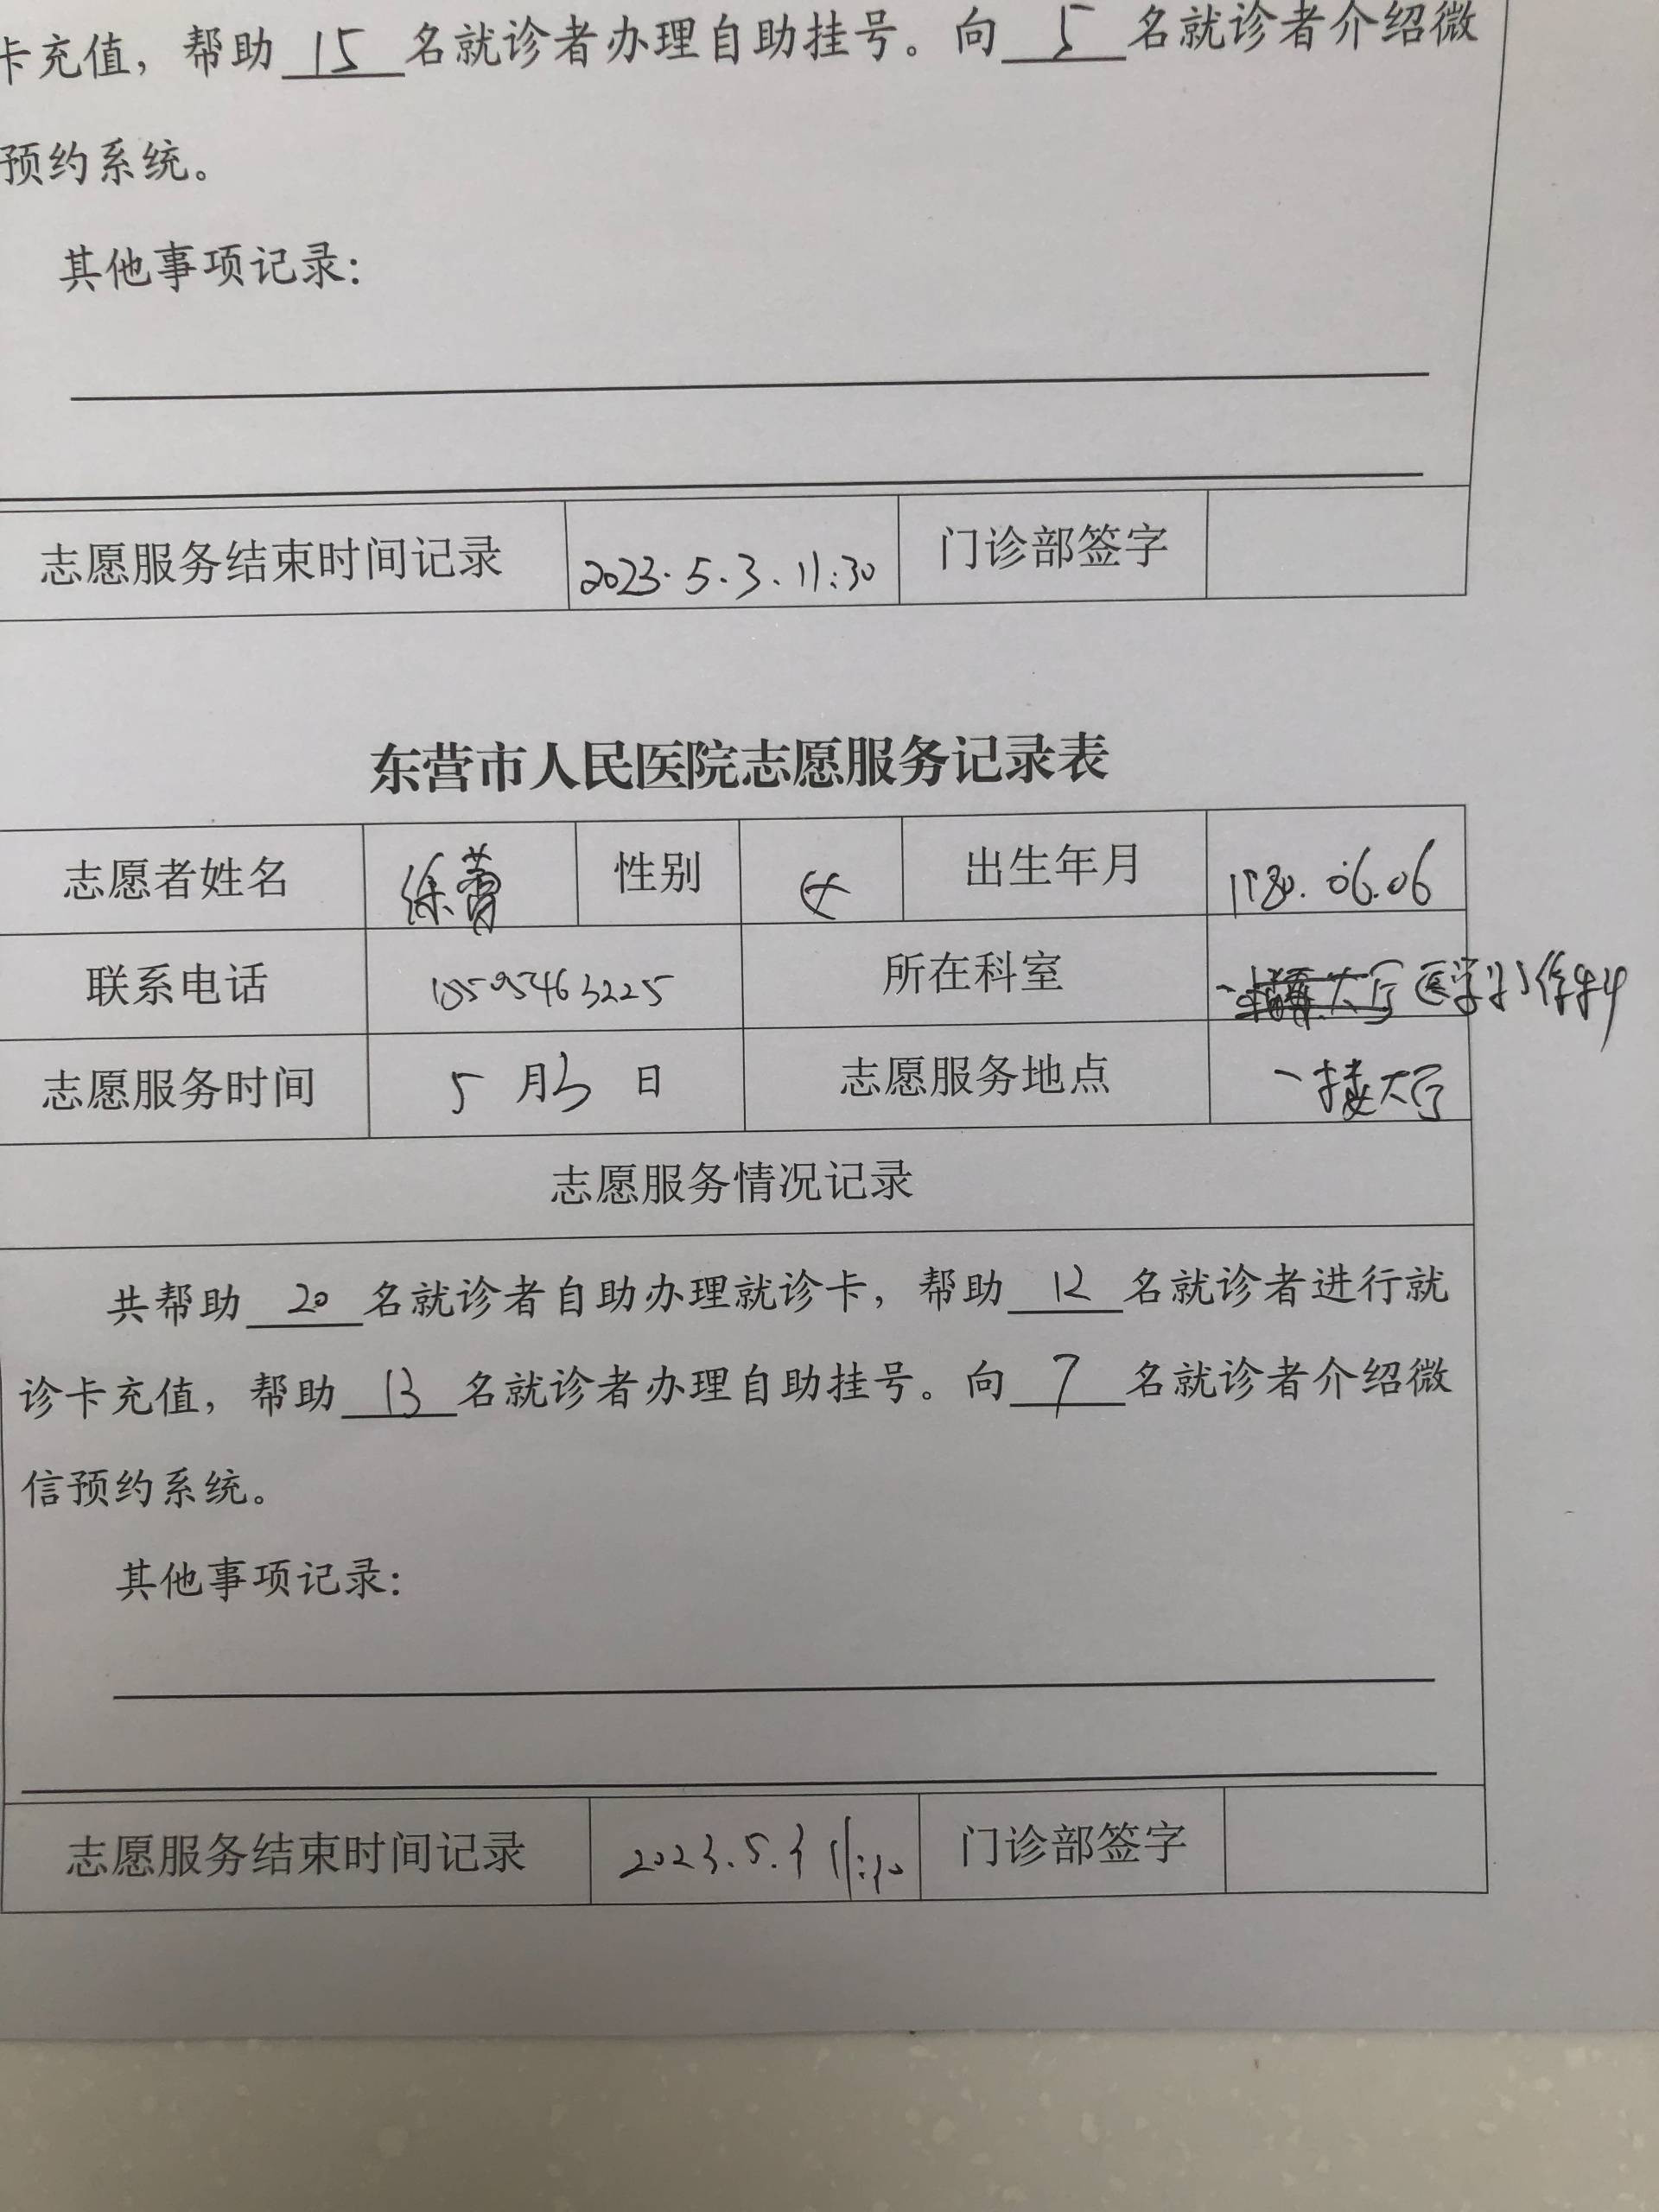 卡充值，帮助 15 名就诊者办理自助挂号。向 5 名就诊者介绍微
预约系统。
其他事项记录：
志愿服务结束时间记录 2023.5.3.11:30 门诊部签字
东营市人民医院志愿服务记录表
志愿者姓名 徐蕾 性别 女 出生年月 1980.06.06
联系电话 所在科室 医学影像科
志愿服务时间 5 月 3 日 志愿服务地点 一楼大厅
志愿服务情况记录
共帮助 20 名就诊者自助办理就诊卡，帮助 12 名就诊者进行就
诊卡充值，帮助 13 名就诊者办理自助挂号。向 7 名就诊者介绍微
信预约系统。
其他事项记录：
志愿服务结束时间记录 2023.5.3 11:30 门诊部签字